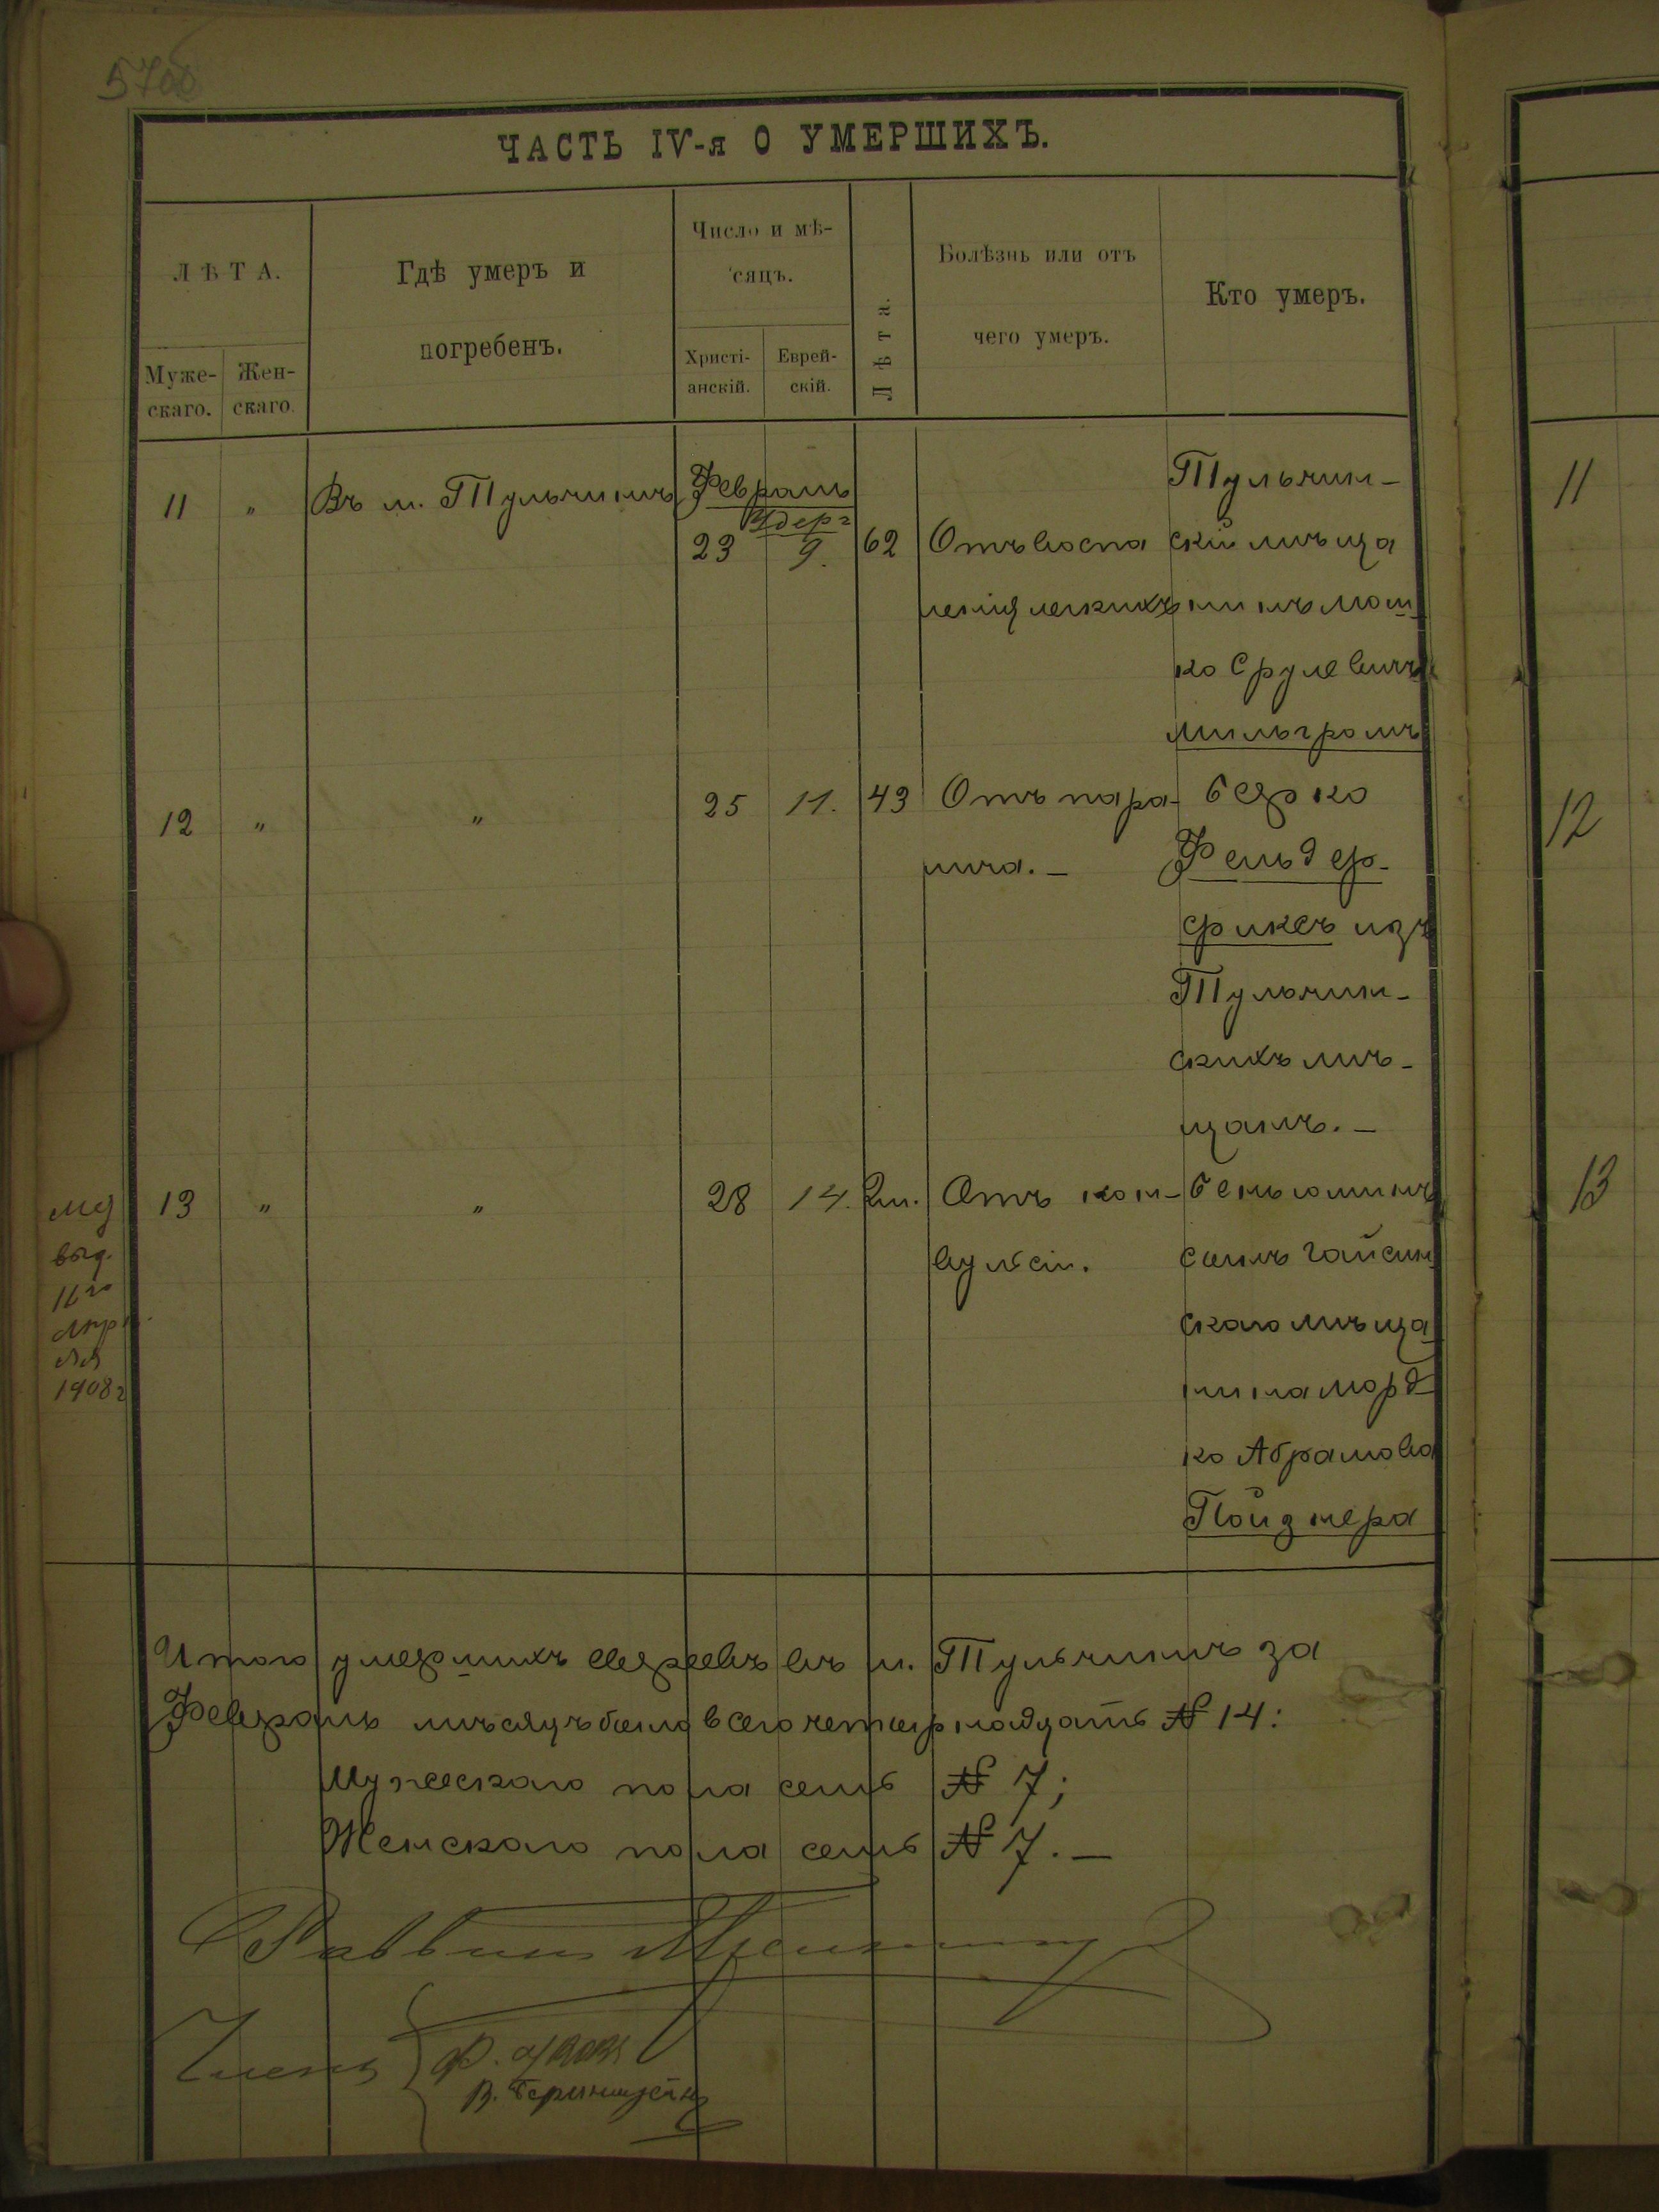 570б
ЧАСТЬ IV-я О УМЕРШИХЪ.
ЛѢТА.
Муже-
скаго.
Жен-
скаго.
Гдѣ умеръ и
погребенъ.
Число и мѣ-
сяцъ.
Христі-
анскій.
Еврей-
скій.
Лѣта.
Болѣзнь или отъ
чего умеръ.
Кто умеръ.
11 " Въ м. Тульчинѣ Февраль
23 9. 62 Отъ воспа
ленія легкихъ
Тульчин-
скій мѣща
нинъ Мош
ко Срулевичъ
Мильгромъ
12 " " 25 11. 43 Отъ пара-
лича. –
Берко
Фельдер-
фиксъ изъ
Тульчин-
скихъ мѣ-
щанъ. –
13 " " 28 14. 2 м. Отъ кон-
вульсіи.
Беньюминъ
сынъ Гайсин
скаго мѣща
нина Морд
ко Абрамова
Пойзнера
выд.
11го
Апрѣ
ля
1908 г
11
12
13
Итого умершихъ евреевъ въ м. Тульчинѣ за
Февраль мѣсяцъ было всего четырнадцать № 14:
Мужескаго пола семь № 7;
Женскаго пола семь № 7. –
Раввинъ
Члены
Ф.
В. Беринштейнъ